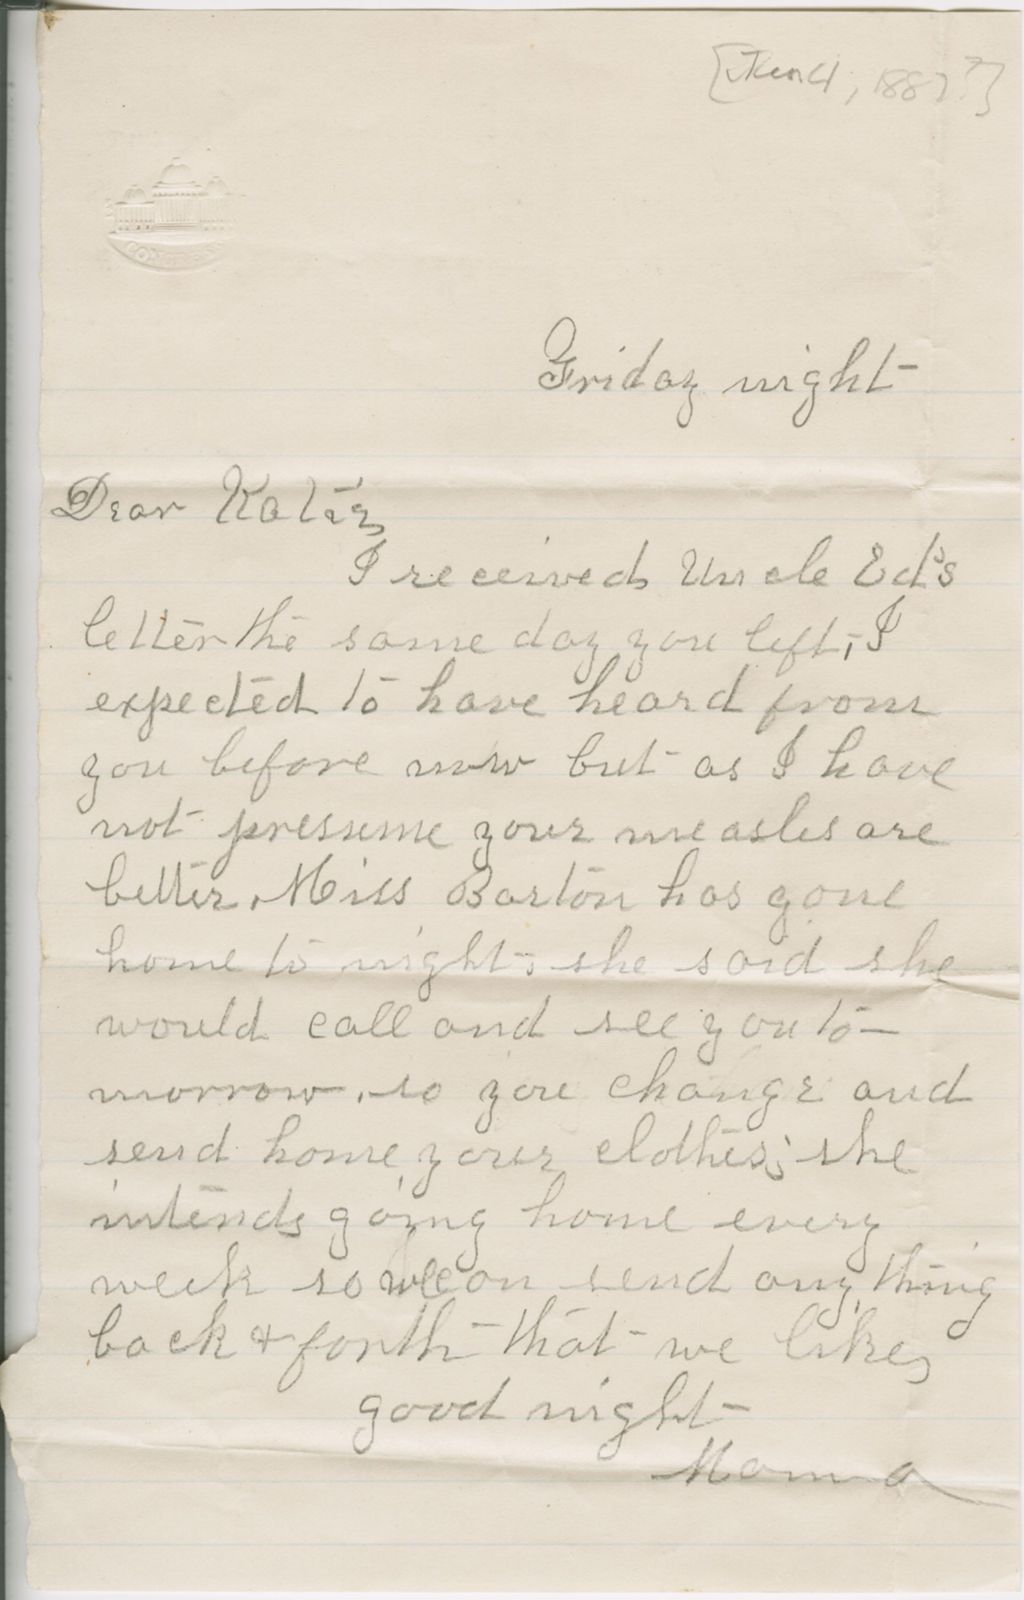 [
, 1887?]
CONGRESS
Friday night
Dear Katie,
I received Uncle Ed's
letter the same day you left, I
expected to have heard from
you before now but as I have
not pressume your measles are
better. Miss Barton has gone
home to night, she said she
would call and see you to-
morrow, so you change and
send home your clothes; she
intends going home every
week so we can send any thing
back & forth that we like,
good night
Mamma